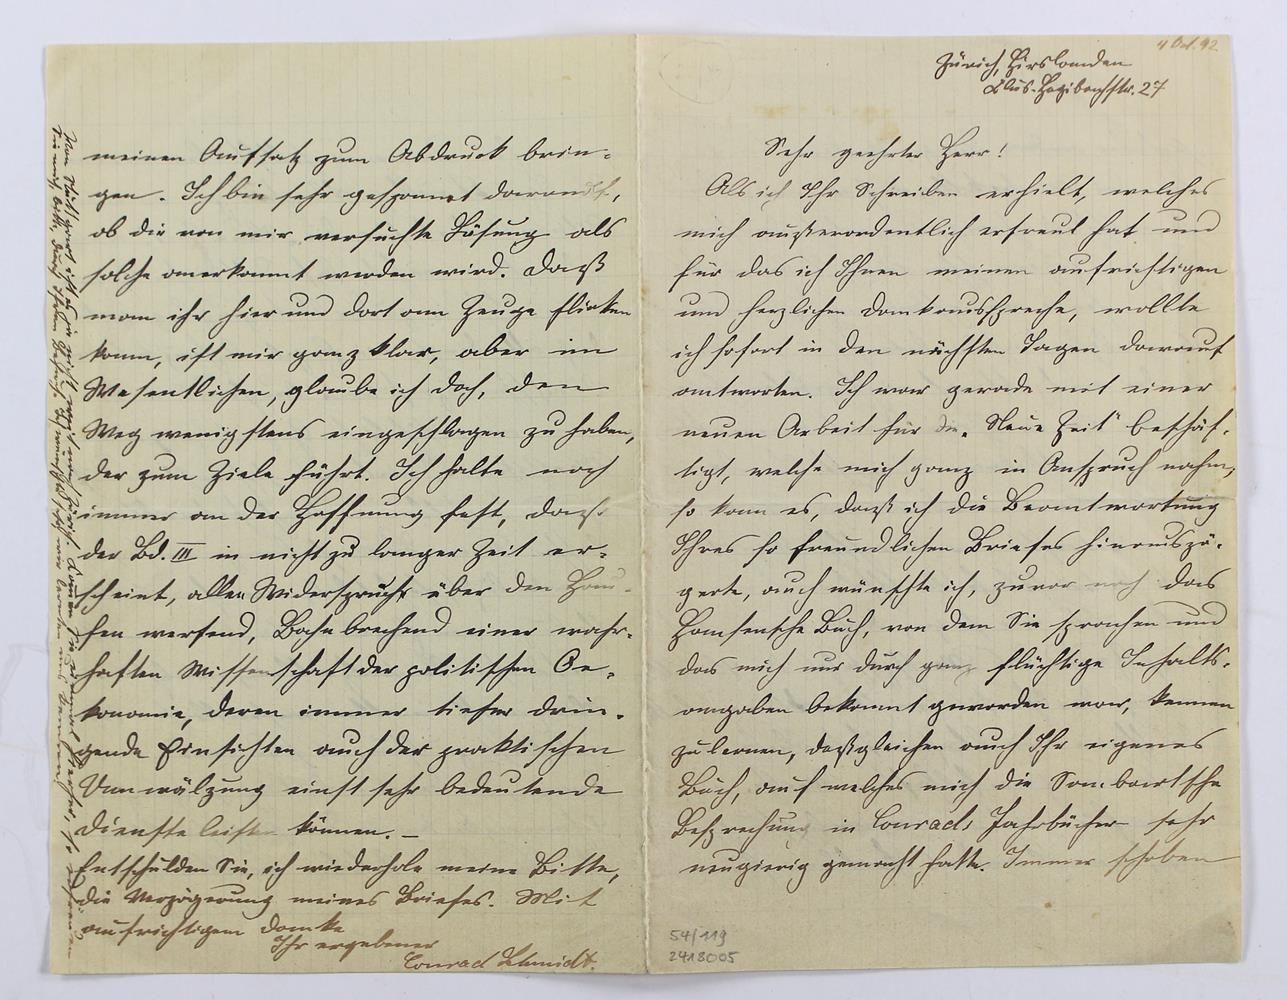 4 Oct. 92
Zürich, Hirslanden
Klus-Hegibachstr. 27
Sehr geehrter Herr!
Als ich Ihr Schreiben erhielt, welches
mich außerordentlich erfreut hat und
für das ich Ihnen meinen aufrichtigen
und herzlichen Dank ausspreche, wollte
ich sofort in den nächsten Tagen darauf
antworten. Ich war gerade mit einer
neuen Arbeit für die „Neue Zeit" beschäf-
tigt, welche mich ganz in Anspruch nahm,
so kam es, daß ich die Beantwortung
Ihres so freundlichen Briefes hinauszö-
gerte, auch wünschte ich, zuvor noch das
Hansensche Buch, von dem Sie sprachen und
das mich nur durch ganz flüchtige Inhalts-
angaben bekannt geworden war, kennen
zu lernen, desgleichen auch Ihr eigenes
Buch, auf welches mich die Sombartsche
Besprechung in Conrads Jahrbücher sehr
neugierig gemacht hatte. Immer schoben
meinen Aufsatz zum Abdruck brin-
gen. Ich bin sehr gespannt darauf,
ob die von mir versuchte Lösung als
solche anerkannt werden wird. Daß
man ihr hier und dort am Zeuge flicken
kann, ist mir ganz klar, aber im
Wesentlichen, glaube ich doch, den
Weg wenigstens eingeschlagen zu haben,
der zum Ziele führt. Ich halte noch
immer an der Hoffnung fest, daß
der Bd. III in nicht zu langer Zeit er-
scheint, allen Widerspruch über den Hau-
fen werfend, Bahn brechend einer wahr-
haften Wissenschaft der politischen Oe-
konomie, deren immer tiefer drin-
gende Einsichten auch der praktischen
Umwälzung einst sehr bedeutende
Dienste leisten können. —
Entschulden Sie, ich wiederhole meine Bitte,
die Verzögerung meines Briefes. Mit
aufrichtigem Danke
Ihr ergebener
Conrad Schmidt.
54/119
2418005